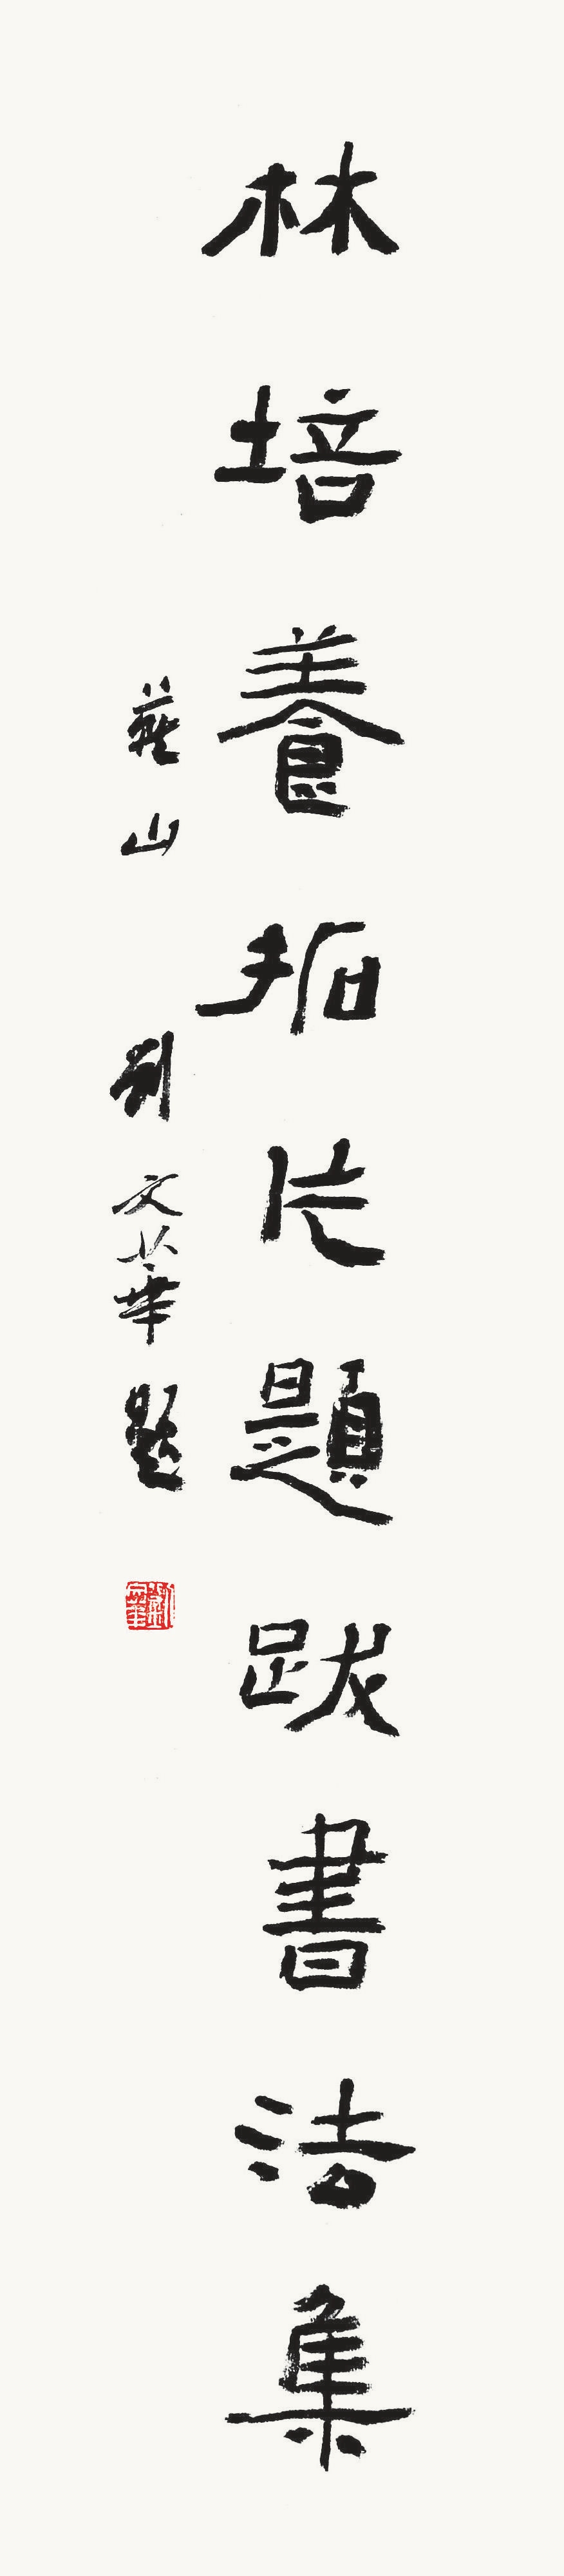 林培養拓片題跋書法集
燕山 劉文華題